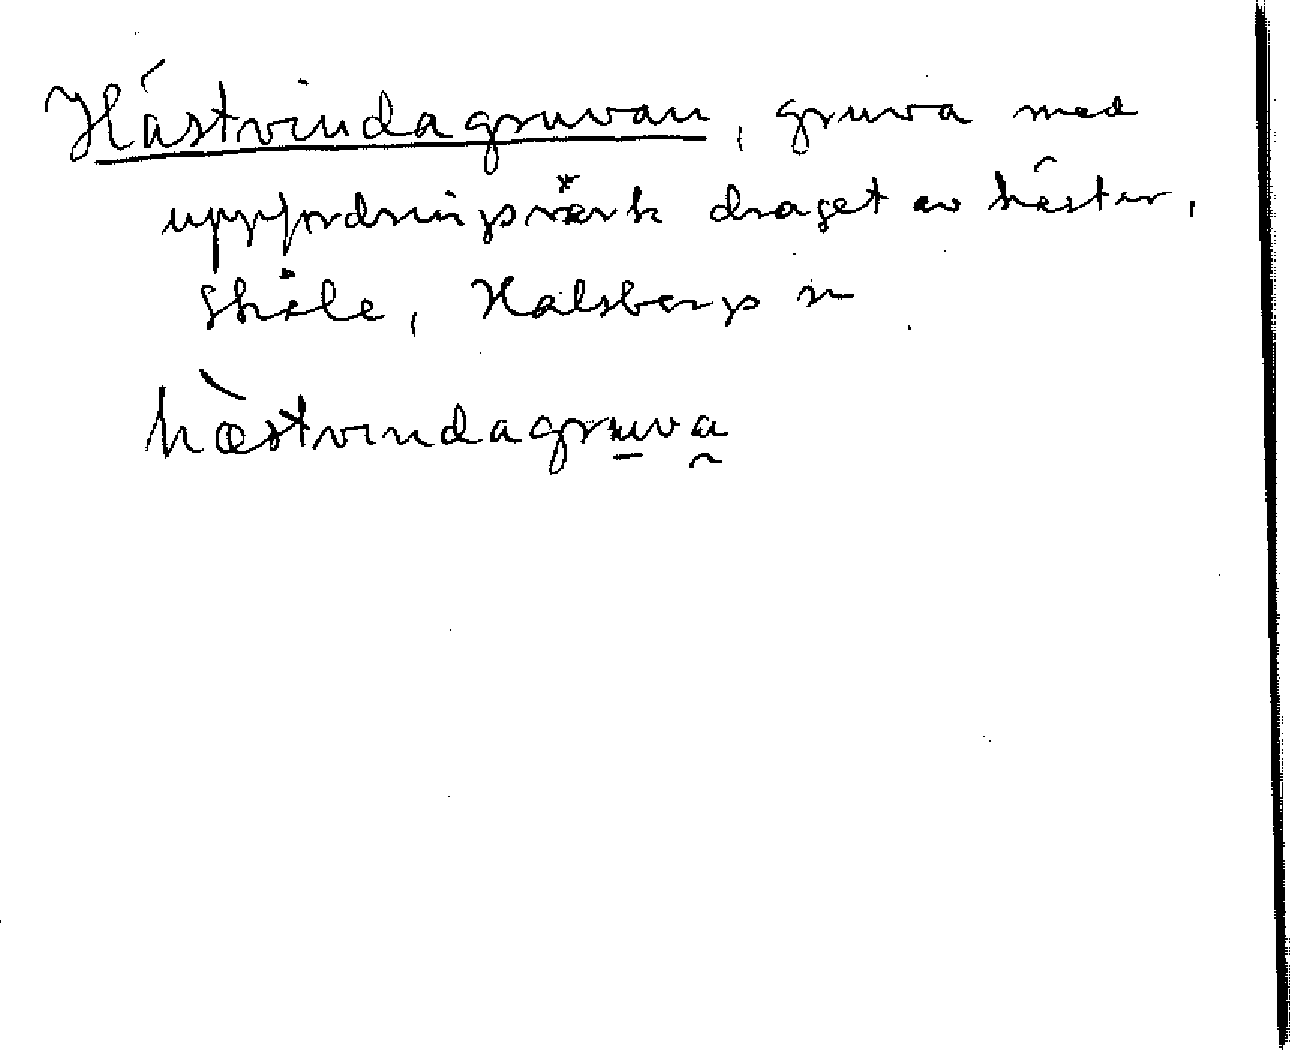 Hästvindagruvan, gruva med
uppfordringsvärk draget av hästar,
Skåle, Halsbergs sn
hæ̀stvindagruva